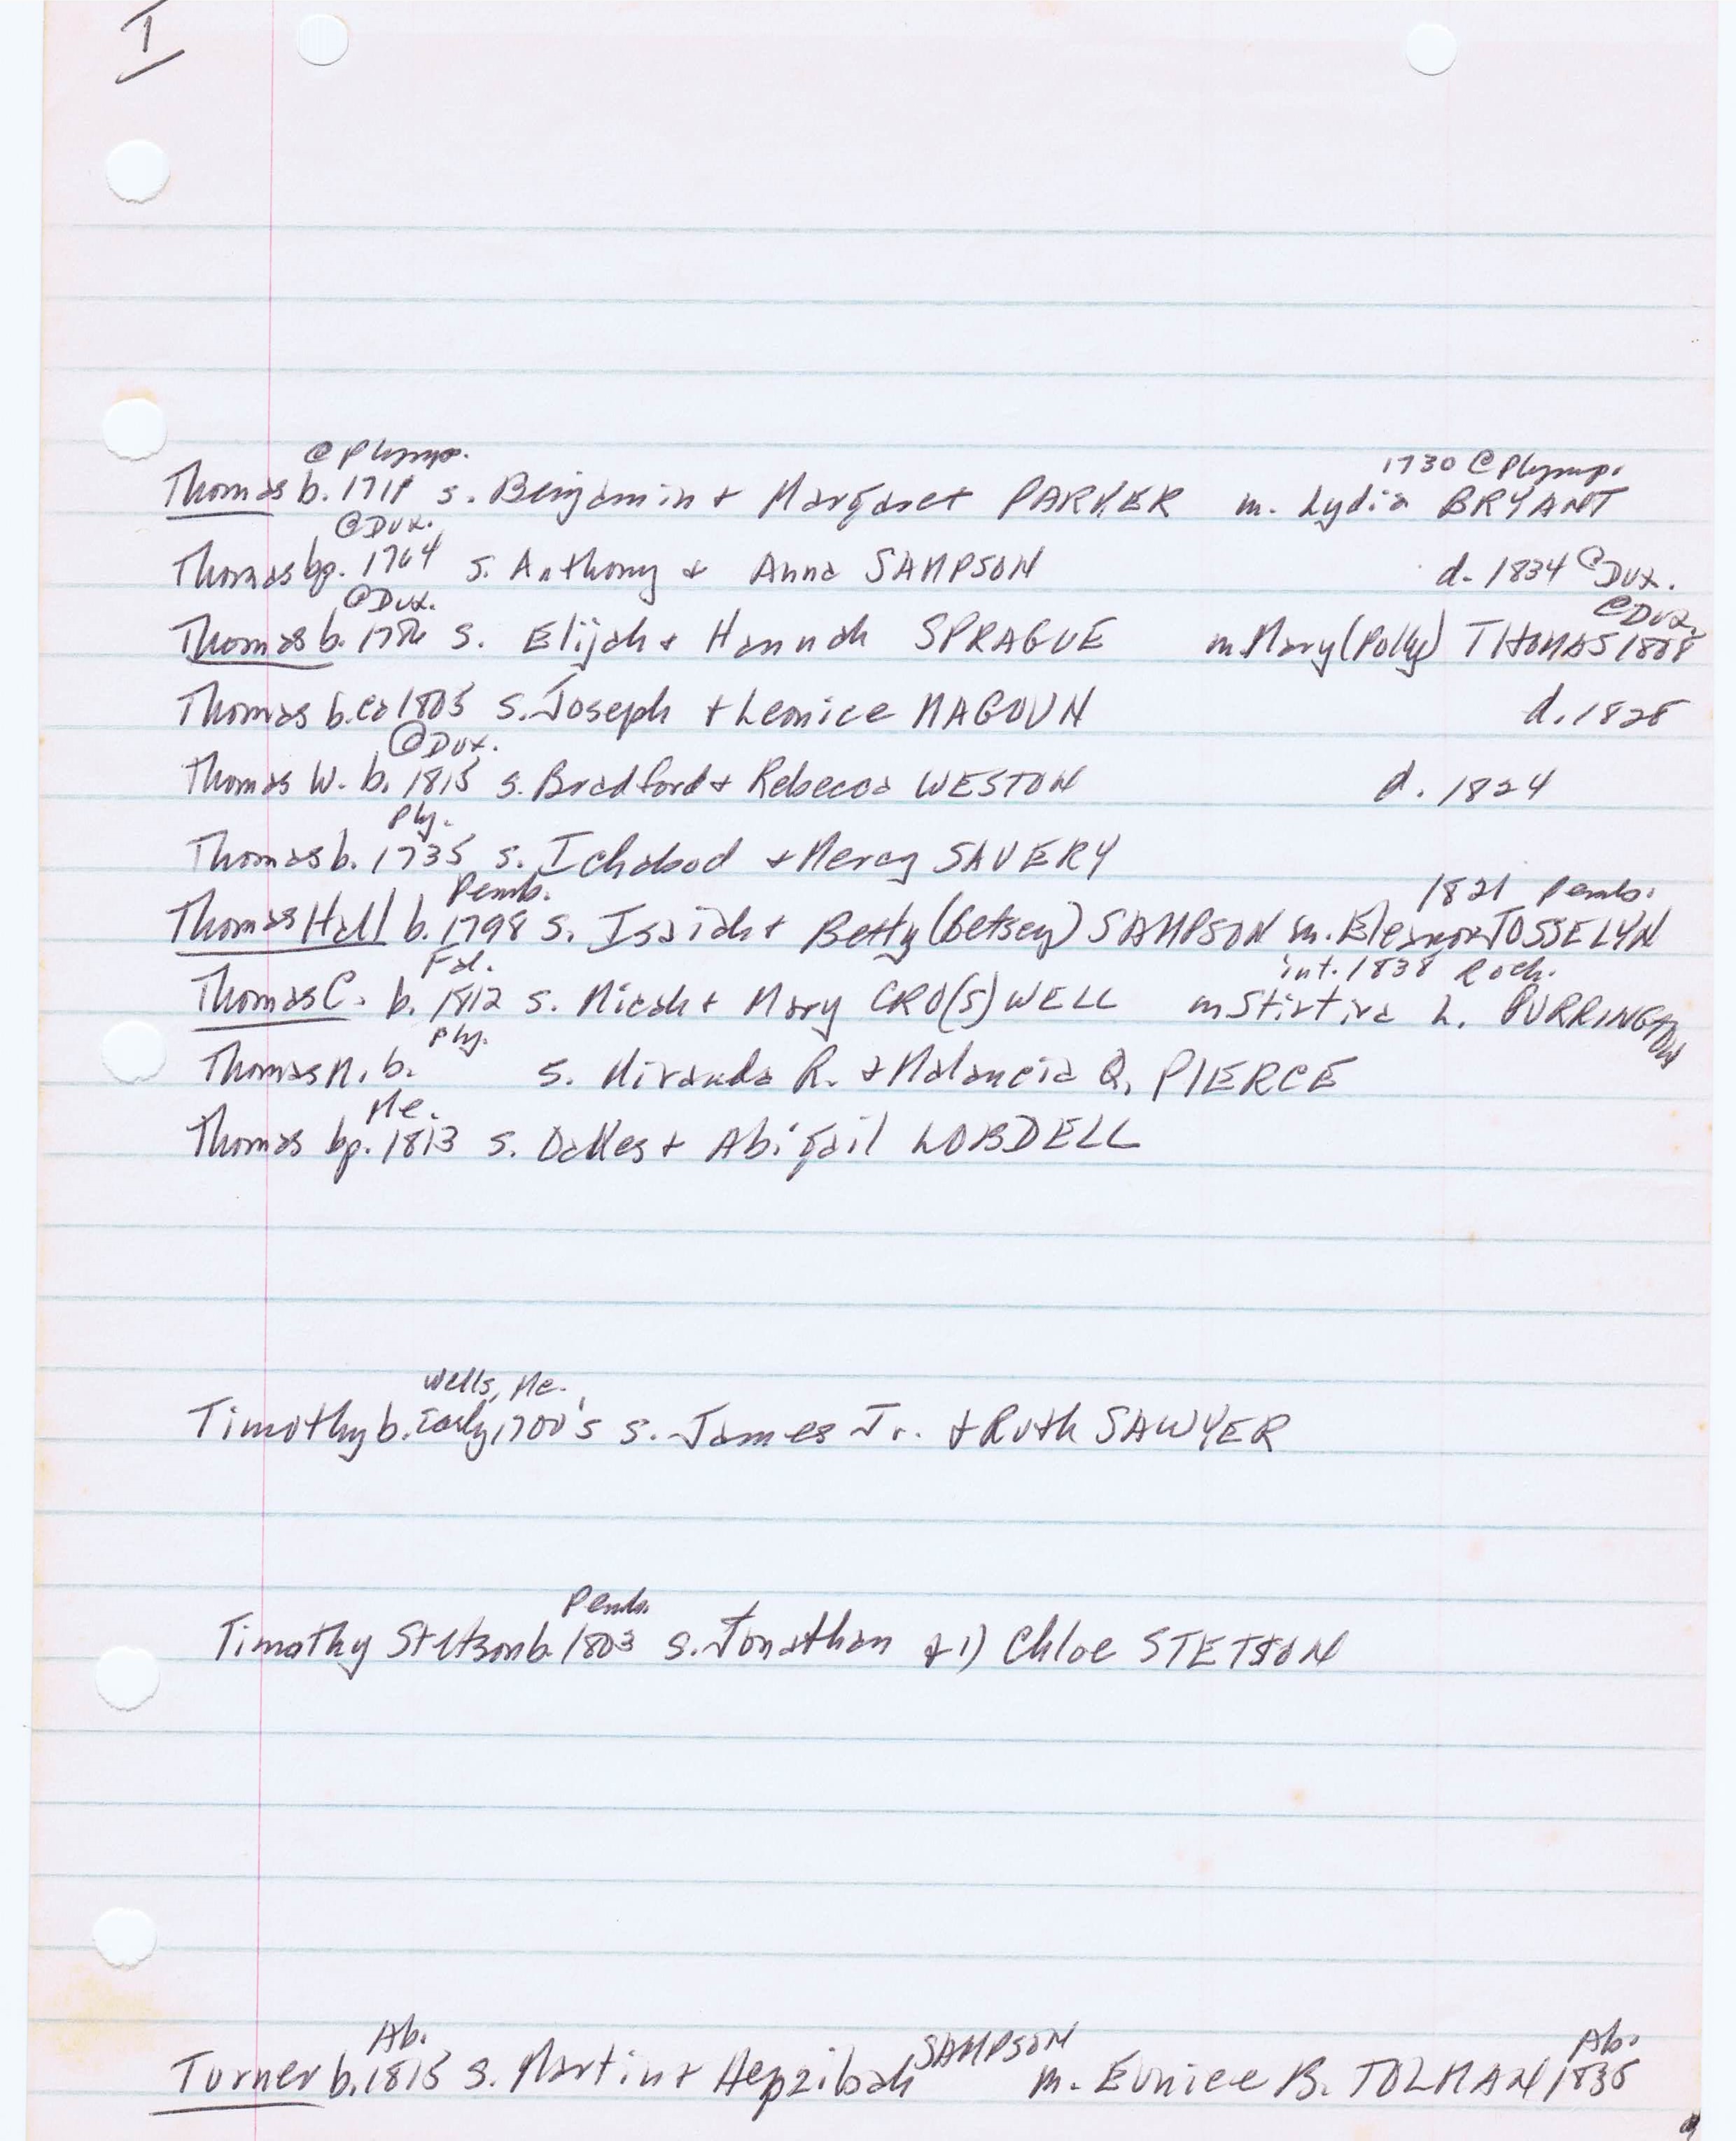 T
@ Plymp. 1730 @ Plymp.
Thomas b. 171 s. Benjamin + Margaret PARKER m. Lydia BRYANT
@Dux.
Thomas bp. 1764 s. Anthony + Anna SAMPSON d. 1834 @Dux.
@Dux. @Dux.
Thomas b. s. Elijah + Hannah SPRAGUE m. Mary (Polly) THOMAS 1808
Thomas b. ca 1803 s. Joseph + Lemice MAGOUN d. 1828
@Dux.
Thomas W. b. 1815 s. Bradford + Rebecca WESTON d. 1824
Ply.
Thomas b. 1735 s. Ichabod + Mercy SAVERY
Pemb. 1821 Pemb.
Thomas Hall b. 1798 s. Isaiah + Betty (Betsey) SAMPSON m. Eleanor JOSSELYN
Fal. int. 1838 Roch.
Thomas C. b. 1812 s. Micah + Mary CRO(S)WELL m. Stirtira L. PURRINGTON
Ply.
Thomas M. b. s. Miranda R. + Malancia Q. PIERCE
Me.
Thomas bp. 1813 s. + Abigail LOBDELL
Wells, Me.
Timothy b. Early 1700's s. James Jr. + Ruth SAWYER
Pemb.
Timothy Stetson b. 1803 s. Jonathan + 1) Chloe STETSON
Ab. SAMPSON Ab.
Turner b. 1815 s. Martin + Hepzibah m. Eunice B. TOLMAN 1836